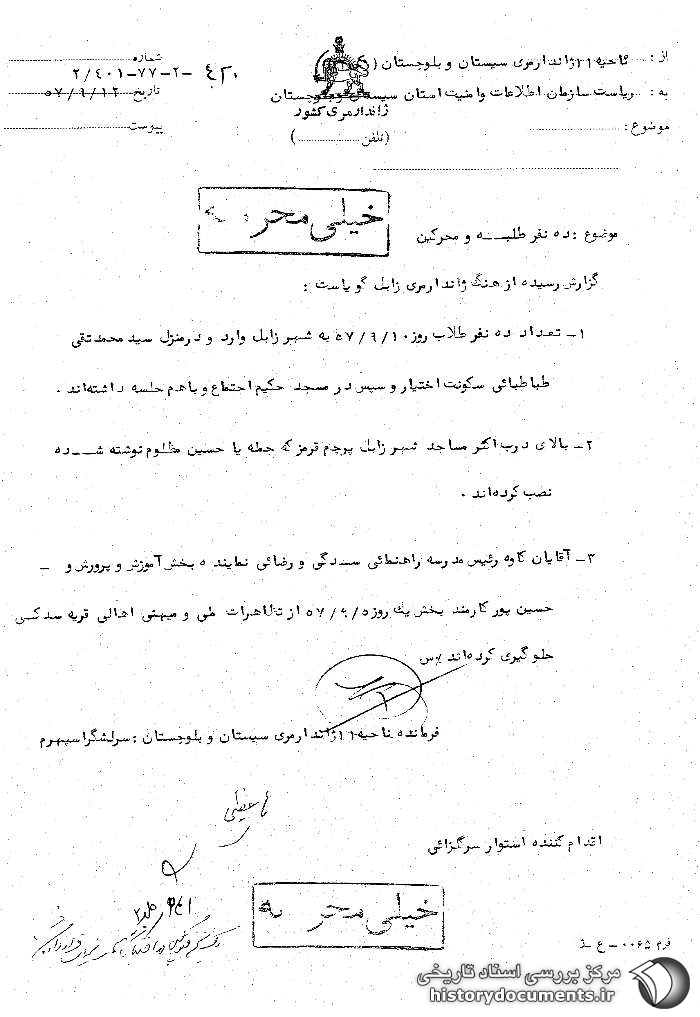 از : ناحیه ۱۱ ژاندارمری سیستان و بلوچستان (
به : ریاست سازمان اطلاعات و امنیت استان سیستان و بلوچستان
موضوع :
ژاندارمری کشور
(تلفن )
شماره ۴۲۰ -۲-۷۷-۲/۴۰۱
تاریخ ۵۷/۹/۱۲
پیوست
خیلی محر نه
موضوع : ده نفر طلبه و محرکین
گزارش رسیده از هنگ ژاندارمری زابل گویاست :
۱- تعداد ده نفر طلاب روز ۵۷/۹/۱۰ به شهر زابل وارد و در منزل سید محمد تقی
طباطبائی سکونت اختیار و سپس در مسجد حکیم اجتماع و باهم جلسه داشته‌اند .
۲- بالای درب اکثر مساجد شهر زابل پرچم قرمز که جمله یا حسین مظلوم نوشته شده
نصب کرده‌اند .
۳- آقایان کاوه رئیس مدرسه راهنمائی سدگی و رضائی نماینده بخش آموزش و پرورش و -
حسین پور کارمند بخش یک روز ۵۷/۹/۵ از تظاهرات ملی و میهنی اهالی قریه سدکی
جلوگیری کرده‌اند
فرمانده ناحیه ۱۱ ژاندارمری سیستان و بلوچستان : سرلشگر اسپهرم
اقدام کننده استوار سرگزائی
خیلی محر نه
فرم ۰۰۶۵ - ع
مرکز بررسی اسناد تاریخی
historydocuments.ir